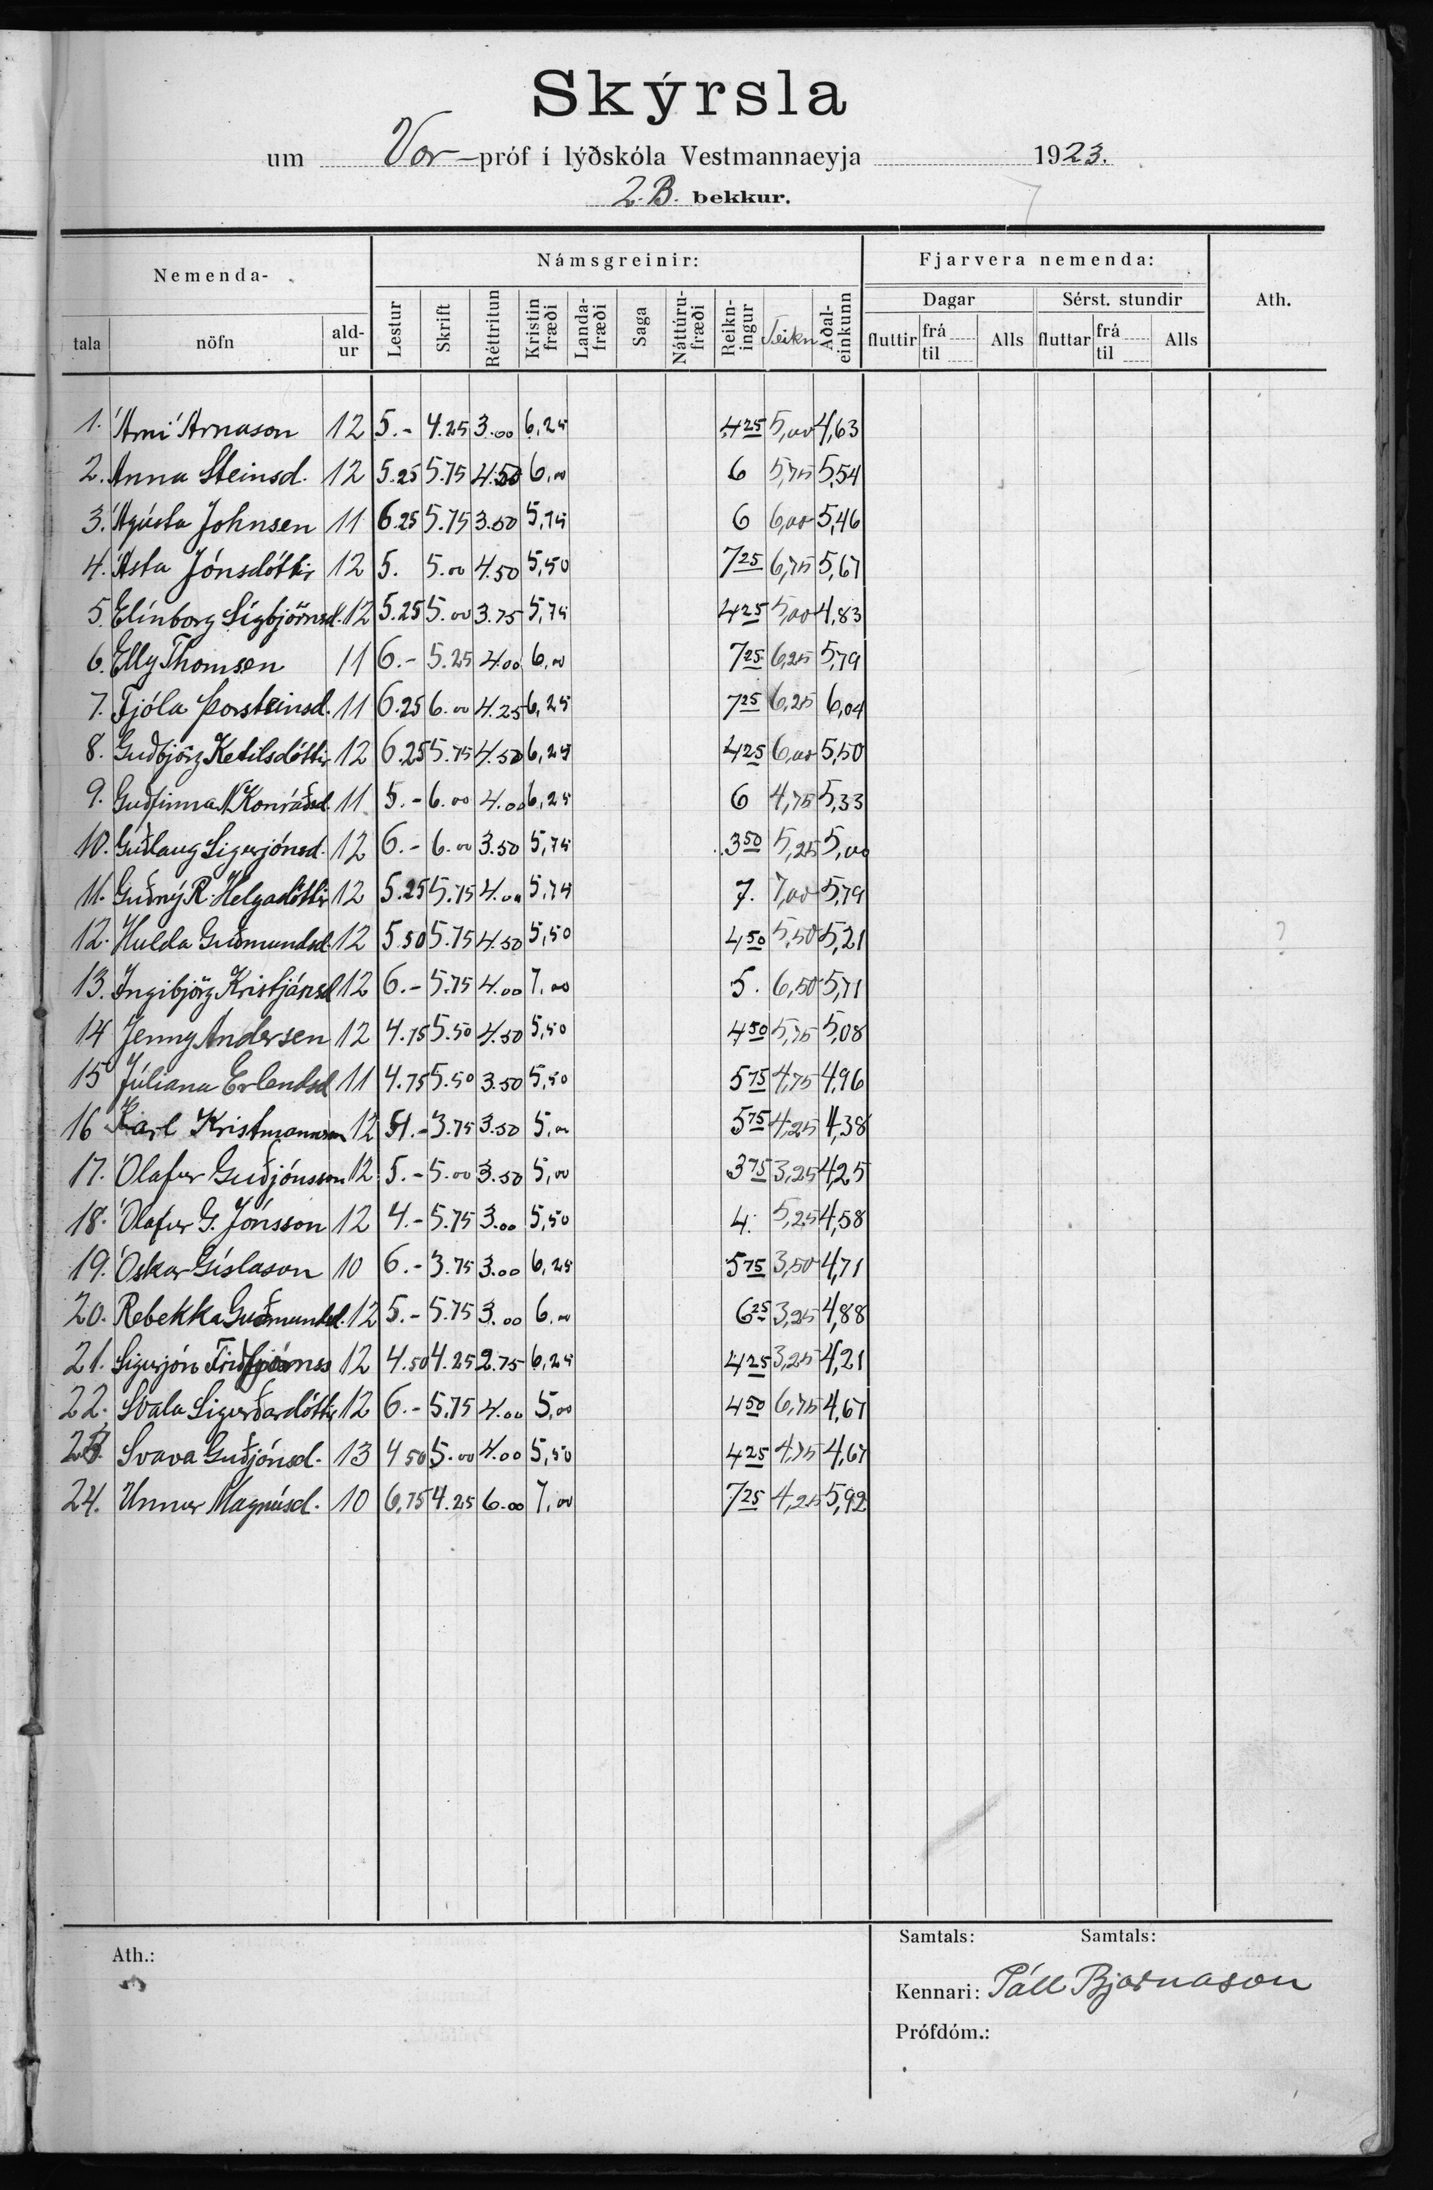 Skýrsla
um Vor-próf í lýðskóla Vestmannaeyja 1923.
2.B. bekkur.
Nemenda- Námsgreinir: Fjarvera nemenda: Ath.
Dagar Sérst. stundir
tala nöfn ald-ur Lestur Skrift Réttritun Kristin fræði Landa-fræði Saga Náttúru-fræði Reikn-ingur Teikn Aðal-einkunn fluttir frá til Alls fluttar frá til Alls
1. Árni Árnason 12 5.- 4.25 3.00 6,25 4 25 5,00 4,63
2. Anna Steinsd. 12 5.25 5.75 4.50 6,00 6 5,75 5,54
3. Ágústa Johnsen 11 6.25 5.75 3.50 5,75 6 6,00 5,46
4. Ásta Jónsdóttir 12 5. 5.00 4.50 5,50 7 25 6,75 5,67
5. Elínborg Sigbjörnsd. 12 5.25 5.00 3.75 5,75 4 25 5,00 4,83
6. Elly Thomsen 11 6.- 5.25 4.00 6,00 7 25 6,25 5,79
7. Fjóla Þorsteinsd. 11 6.25 6.00 4.25 6,25 7 25 6,25 6,04
8. Guðbjörg Ketilsdóttir 12 6.25 5.75 4.50 6,25 4 25 6,00 5,50
9. Guðfinna N Konráðsd. 11 5.- 6.00 4.00 6,25 6 4,75 5,33
10. Guðlaug Sigurjónsd. 12 6.- 6.00 3.50 5,75 3 50 5,25 5,00
11. Guðný R. Helgadóttir 12 5.25 5.75 4.00 5,75 7. 7,00 5,79
12. Hulda Guðmundsd. 12 5.50 5.75 4.50 5,50 4 50 5,50 5,21
13. Ingibjörg Kristjánsd 12 6.- 5.75 4.00 7,00 5. 6,50 5,71
14 Jenny Andersen 12 4.75 5.50 4.50 5,50 4 50 5,75 5,08
15 Júliana Erlendsd 11 4.75 5.50 3.50 5,50 5 75 4,75 4,96
16 Karl Kristmannsson 12 4.- 3.75 3.50 5,00 5 75 4,25 4,38
17. Ólafur Guðjónsson 12 5.- 5.00 3.50 5,00 3 75 3,25 4,25
18. Ólafur G. Jónsson 12 4.- 5.75 3.00 5,50 4. 5,25 4,58
19. Óskar Gíslason 10 6.- 3.75 3.00 6,25 5 75 3,50 4,71
20. Rebekka Guðmundsd. 12 5.- 5.75 3.00 6.00 6 25 3,25 4,88
21. Sigurjón 12 4.50 4.25 2.75 6,25 4 25 3,25 4,21
22. Svala Sigurðardóttir 12 6.- 5,75 4.00 5,00 4 50 6,75 4,67
23. Svava Guðjónsd. 13 4 50 5.00 4.00 5,50 4 25 4,75 4,67
24. Unnur Magnúsd. 10 6,75 4.25 6.00 7,00 7 25 4,25 5,92
Ath.: Samtals: Samtals:
Kennari: Páll Bjarnason
Prófdóm.: